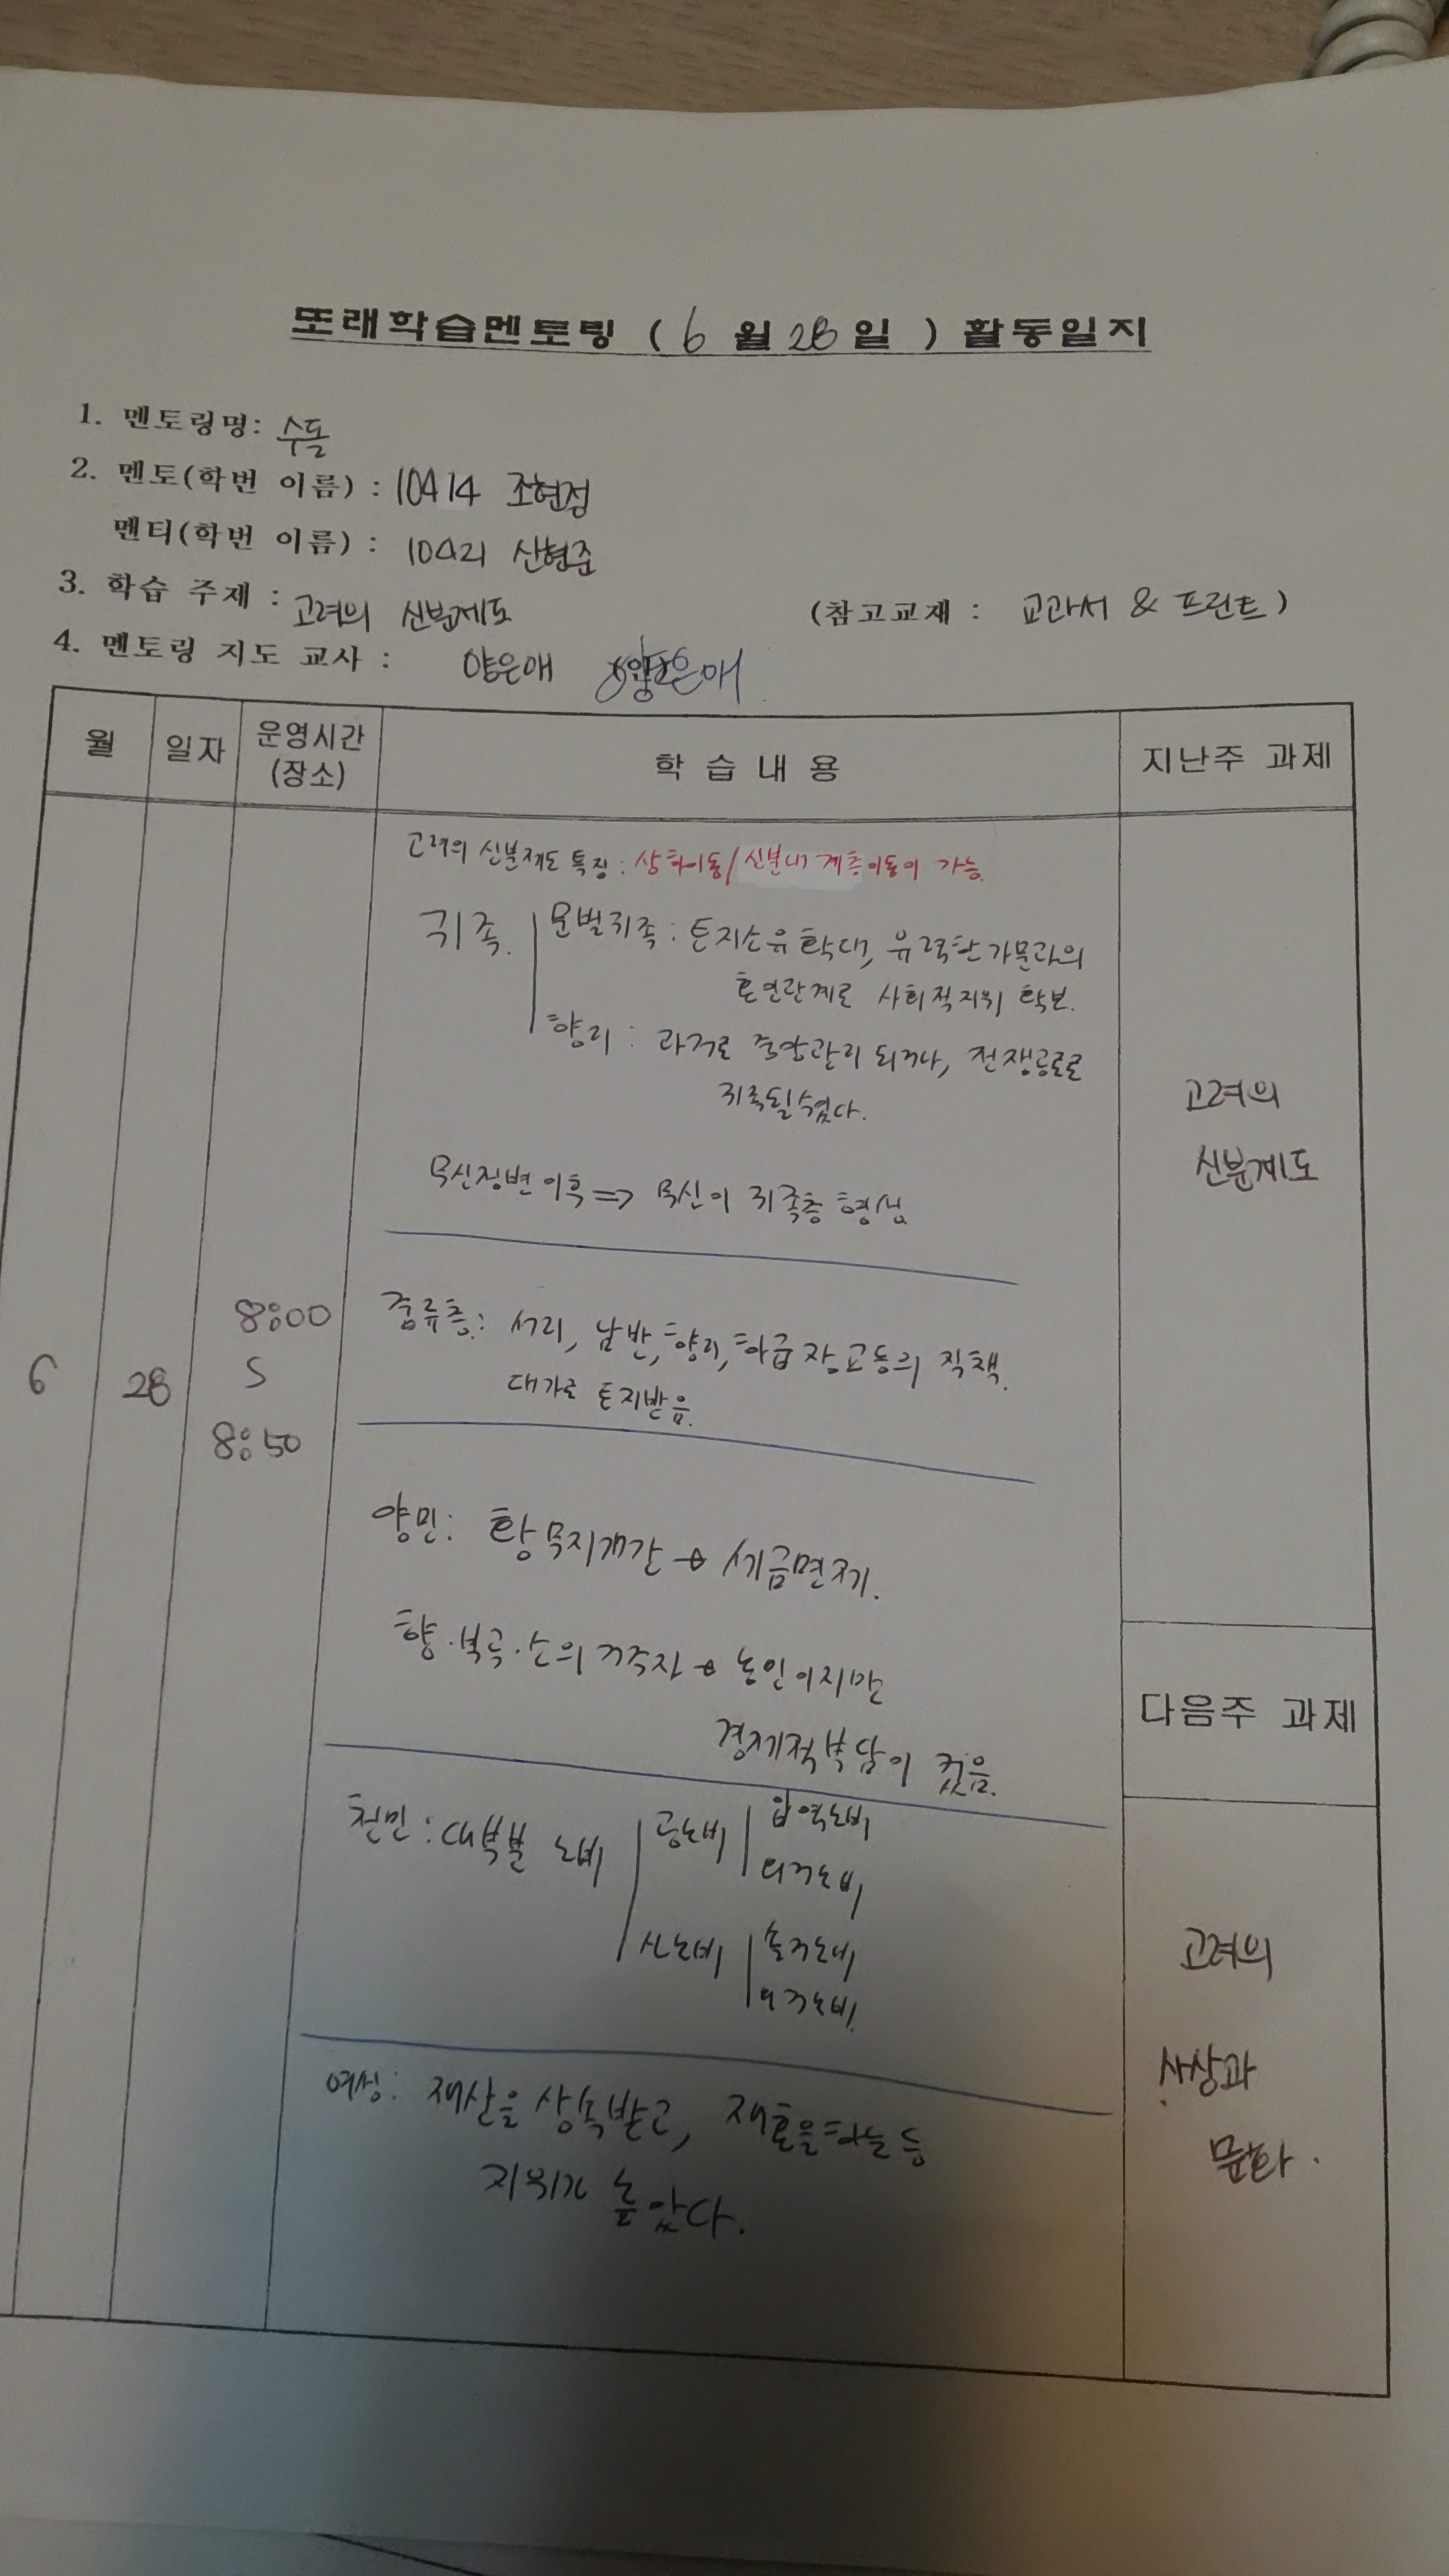 또래학습멘토링 ( 6 월 28 일 ) 활동일지
1. 멘토링명: 수돌
2. 멘토(학번 이름) : 10414 조현정
멘티(학번 이름) : 10421 신형준
3. 학습 주제 : 고려의 신분제도 (참고교재 : 교과서 & 프린트)
4. 멘토링 지도 교사 : 양은애 양은애
월 일자 운영시간 (장소) 학 습 내 용 지난주 과제
고려의 신분제도 특징 : 상하이동/신분내 계층이동이 가능.
귀족. 문벌귀족 : 토지소유 확대, 유력한 가문과의
혼인관계로 사회적지위 확보.
향리 : 과거로 중앙관리 되거나, 전쟁공로로
귀족될수있다.
무신정변 이후 => 무신이 귀족층 형성
고려의
신분제도
중류층 : 서리, 남반, 향리, 하급 장교등의 직책.
대가로 토지받음.
6 28 8:00
S
8:50
양민 : 황무지개간 → 세금면제.
향·부곡·소의 거주자 → 농민이지만
경제적부담이 컸음.
다음주 과제
천민 : 대부분 노비 공노비 입역노비
외거노비
사노비 솔거노비
외거노비.
고려의
사상과
문화.
여성 : 재산을 상속받고, 재혼을하는 등
지위가 높았다.